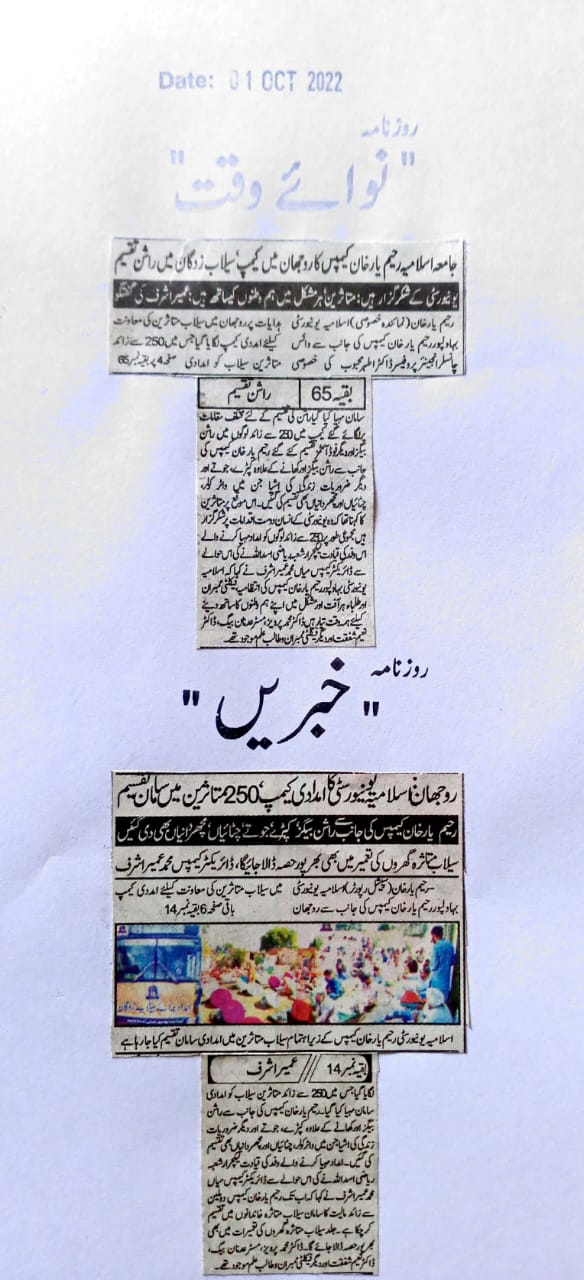 Date: 01 OCT 2022
روزنامہ
"نوائے وقت"
جامعہ اسلامیہ رحیم یارخان کیمپس کا روجھان میں کیمپ، سیلاب زدگان میں راشن تقسیم
یونیورسٹی کے شکرگزار ہیں: متاثرین، ہر مشکل میں ہم وطنوں کیساتھ ہیں: عمیر اشرف کی گفتگو
رحیم یارخان (نمائندہ خصوصی) اسلامیہ یونیورسٹی
بہاولپور رحیم یارخان کیمپس کی جانب سے وائس
چانسلر انجینئر پروفیسر ڈاکٹر اطہر محبوب کی خصوصی
ہدایات پر روجھان میں سیلاب متاثرین کی معاونت
کیلئے امدادی کیمپ لگایا گیا جس میں 250 سے زائد
متاثرین سیلاب کو امدادی صفحہ 4 پر بقیہ نمبر 65
بقیہ 65
راشن تقسیم
سامان مہیا کیا گیا راشن کی تقسیم کے لئے مختلف مقامات
پر لگائے گئے کیمپ میں 250 سے زائد لوگوں میں راشن
بیگز اور دیگر فوڈ آئٹمز تقسیم کئے گئے رحیم یارخان کیمپس کی
جانب سے راشن بیگز اور کھانے کے علاوہ کپڑے، جوتے اور
دیگر ضروریات زندگی کی اشیا جن میں واٹر کولر،
چٹائیاں اور مچھر دانیاں بھی تقسیم کی گئیں۔ اس موقع پر متاثرین
کا کہنا تھا کہ وہ یونیورسٹی کے انسان دوست اقدامات پر شکرگزار
ہیں مجموعی طور پر 250 سے زائد لوگوں کو امداد مہیا کرنے والے
اس وفد کی قیادت لیکچرار شعبہ ریاضی اسد اللہ نے کی اس حوالے
سے ڈائریکٹر کیمپس میاں محمد عمیر اشرف نے کہا کہ اسلامیہ
یونیورسٹی بہاولپور رحیم یارخان کیمپس کی انتظامیہ فیکلٹی ممبران
اور طلباء ہر آفت اور مشکل میں اپنے ہم وطنوں کا ساتھ دینے
کیلئے ہمہ وقت تیار ہیں ڈاکٹر محمد پرویز، مسٹر عدنان بیگ، ڈاکٹر
نعیم شفقت اور دیگر فیکلٹی ممبران و طالب علم موجود تھے۔
روزنامہ
"خبریں"
روجھان: اسلامیہ یونیورسٹی کا امدادی کیمپ، 250 متاثرین میں سامان تقسیم
رحیم یارخان کیمپس کی جانب سے راشن بیگز، کپڑے، جوتے، چٹائیاں، مچھر دانیاں بھی دی گئیں
سیلاب متاثرہ گھروں کی تعمیر میں بھی بھرپور حصہ ڈالا جائیگا، ڈائریکٹر کیمپس محمد عمیر اشرف
رحیم یارخان (سپیشل رپورٹر) اسلامیہ یونیورسٹی
بہاولپور رحیم یارخان کیمپس کی جانب سے روجھان
میں سیلاب متاثرین کی معاونت کیلئے امدادی کیمپ
باقی صفحہ 6 بقیہ نمبر 14
اسلامیہ یونیورسٹی رحیم یارخان کیمپس کے زیراہتمام سیلاب متاثرین میں امدادی سامان تقسیم کیا جا رہا ہے
بقیہ نمبر 14 /// عمیر اشرف
لگایا گیا جس میں 250 سے زائد متاثرین سیلاب کو امدادی
سامان مہیا کیا گیا۔ رحیم یارخان کیمپس کی جانب سے راشن
بیگز اور کھانے کے علاوہ کپڑے، جوتے اور دیگر ضروریات
زندگی کی اشیا جن میں واٹر کولر، چٹائیاں اور مچھر دانیاں بھی تقسیم
کی گئیں۔ امداد مہیا کرنے والے وفد کی قیادت لیکچرار شعبہ
ریاضی اسد اللہ نے کی اس حوالے سے ڈائریکٹر کیمپس میاں
محمد عمیر اشرف نے کہا کہ اب تک رحیم یارخان کیمپس دو ملین
سے زائد مالیت کا سامان سیلاب متاثرہ خاندانوں میں تقسیم
کر چکا ہے۔ جلد سیلاب متاثرہ گھروں کی تعمیرات میں بھی
بھرپور حصہ ڈالا جائے گا۔ ڈاکٹر محمد پرویز، مسٹر عدنان بیگ،
ڈاکٹر نعیم شفقت اور دیگر فیکلٹی ممبران و طالب علم موجود تھے۔